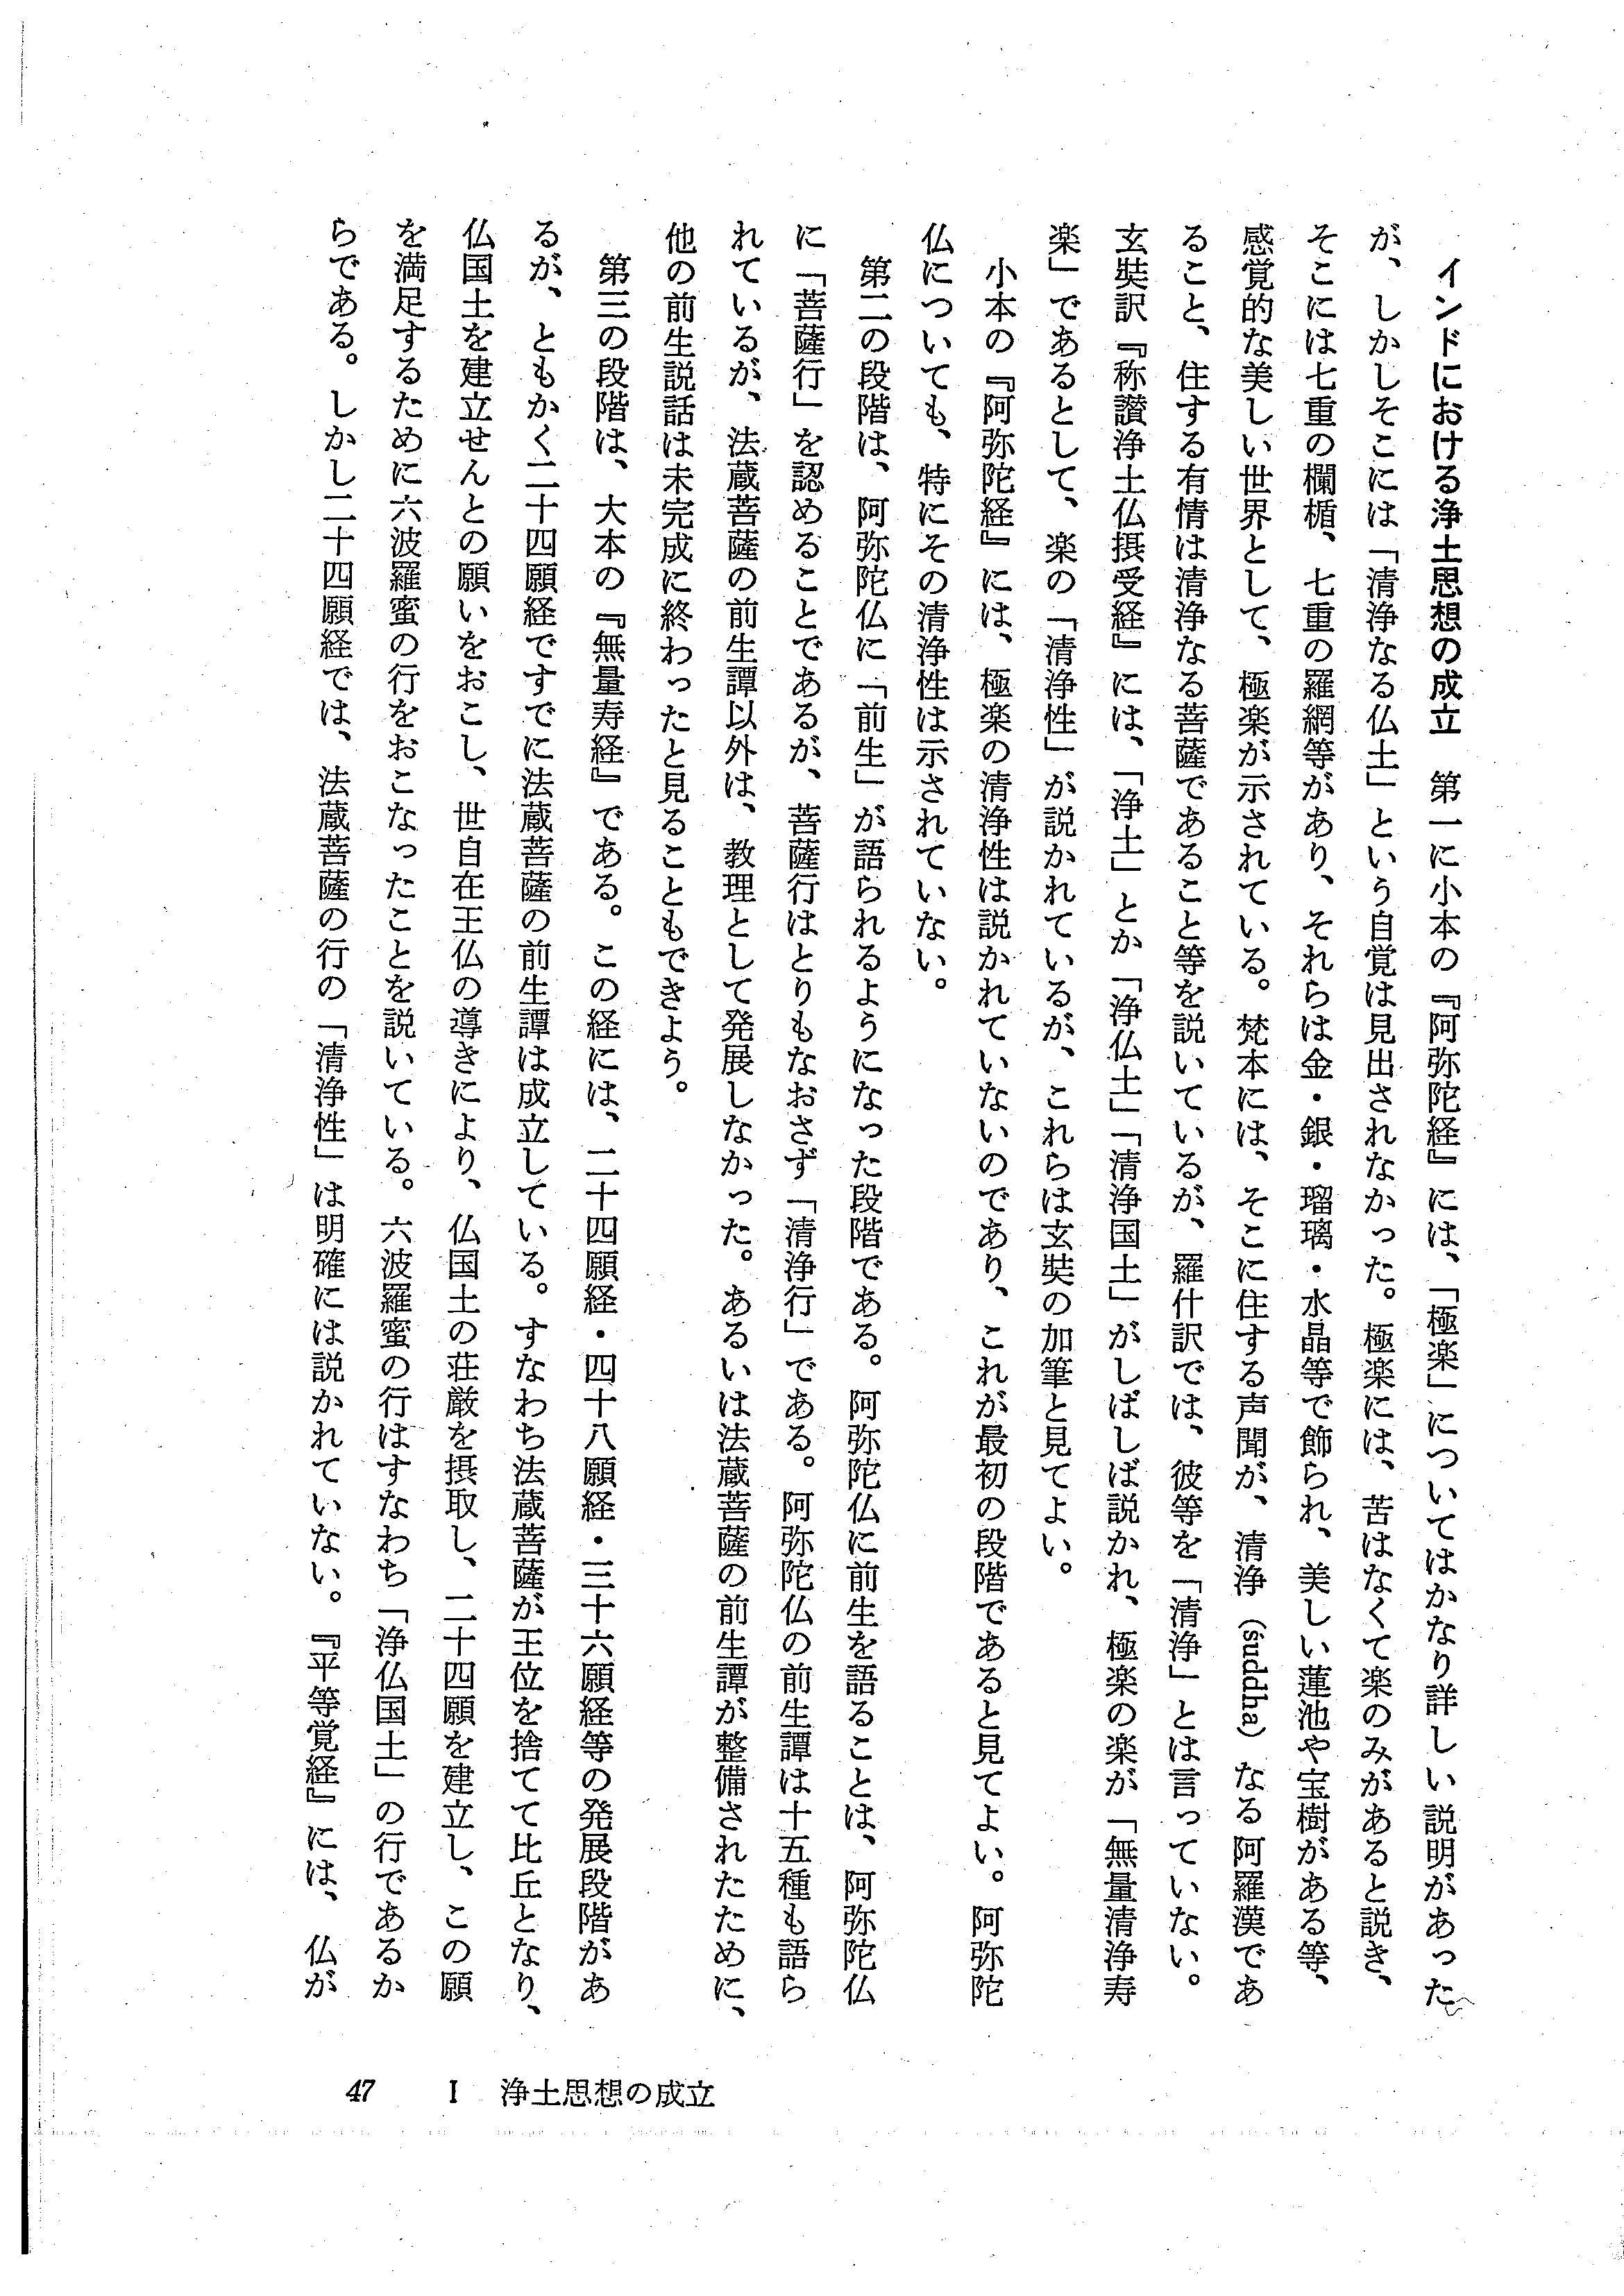 インドにおける浄土思想の成立　第一に小本の『阿弥陀経』には、「極楽」についてはかなり詳しい説明があった
が、しかしそこには「清浄なる仏土」という自覚は見出されなかった。極楽には、苦はなくて楽のみがあると説き、
そこには七重の欄楯、七重の羅網等があり、それらは金・銀・瑠璃・水晶等で飾られ、美しい蓮池や宝樹がある等、
感覚的な美しい世界として、極楽が示されている。梵本には、そこに住する声聞が、清浄（śuddha）なる阿羅漢であ
ること、住する有情は清浄なる菩薩であること等を説いているが、羅什訳では、彼等を「清浄」とは言っていない。
玄奘訳『称讃浄土仏摂受経』には、「浄土」とか「浄仏土」「清浄国土」がしばしば説かれ、極楽の楽が「無量清浄寿
楽」であるとして、楽の「清浄性」が説かれているが、これらは玄奘の加筆と見てよい。
小本の『阿弥陀経』には、極楽の清浄性は説かれていないのであり、これが最初の段階であると見てよい。阿弥陀
仏についても、特にその清浄性は示されていない。
第二の段階は、阿弥陀仏に「前生」が語られるようになった段階である。阿弥陀仏に前生を語ることは、阿弥陀仏
に「菩薩行」を認めることであるが、菩薩行はとりもなおさず「清浄行」である。阿弥陀仏の前生譚は十五種も語ら
れているが、法蔵菩薩の前生譚以外は、教理として発展しなかった。あるいは法蔵菩薩の前生譚が整備されたために、
他の前生説話は未完成に終わったと見ることもできよう。
第三の段階は、大本の『無量寿経』である。この経には、二十四願経・四十八願経・三十六願経等の発展段階があ
るが、ともかく二十四願経ですでに法蔵菩薩の前生譚は成立している。すなわち法蔵菩薩が王位を捨てて比丘となり、
仏国土を建立せんとの願いをおこし、世自在王仏の導きにより、仏国土の荘厳を摂取し、二十四願を建立し、この願
を満足するために六波羅蜜の行をおこなったことを説いている。六波羅蜜の行はすなわち「浄仏国土」の行であるか
らである。しかし二十四願経では、法蔵菩薩の行の「清浄性」は明確には説かれていない。『平等覚経』には、仏が
47　I　浄土思想の成立